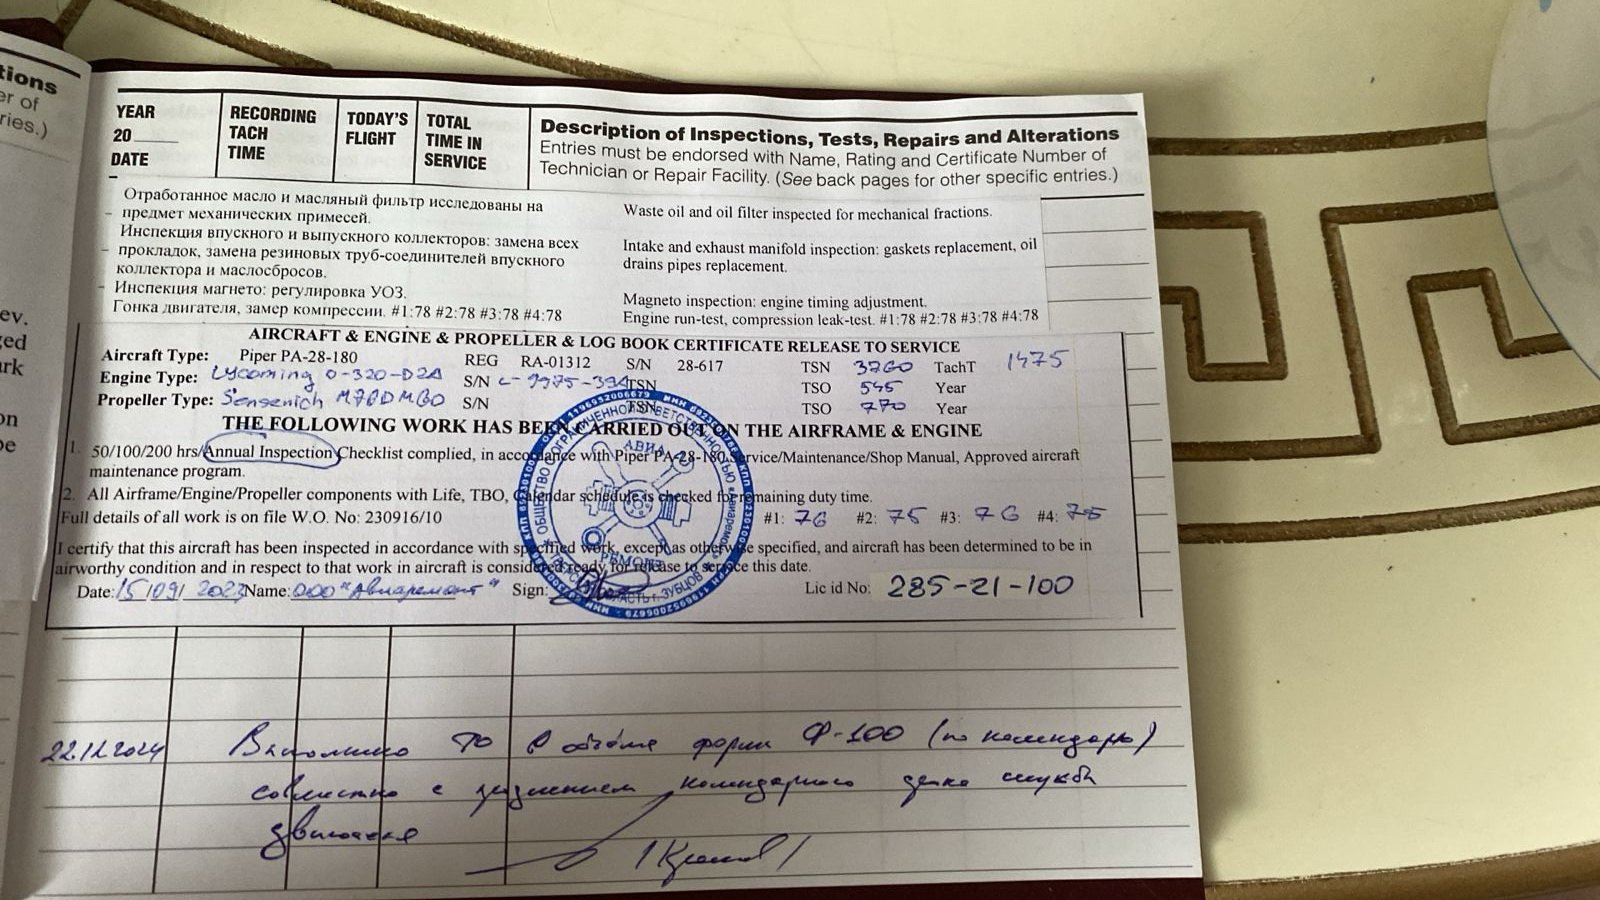 tions
er of
ries.)
ev.
ged
ark
on
be
YEAR
20
DATE
RECORDING
TACH
TIME
TODAY'S
FLIGHT
TOTAL
TIME IN
SERVICE
Description of Inspections, Tests, Repairs and Alterations
Entries must be endorsed with Name, Rating and Certificate Number of
Technician or Repair Facility. (See back pages for other specific entries.)
Отработанное масло и масляный фильтр исследованы на
- предмет механических примесей.
Инспекция впускного и выпускного коллекторов: замена всех
- прокладок, замена резиновых труб-соединителей впускного
коллектора и маслосбросов.
- Инспекция магнето: регулировка УОЗ.
Гонка двигателя, замер компрессии. #1:78 #2:78 #3:78 #4:78
Waste oil and oil filter inspected for mechanical fractions.
Intake and exhaust manifold inspection: gaskets replacement, oil
drains pipes replacement.
Magneto inspection: engine timing adjustment.
Engine run-test, compression leak-test. #1:78 #2:78 #3:78 #4:78
AIRCRAFT & ENGINE & PROPELLER & LOG BOOK CERTIFICATE RELEASE TO SERVICE
Aircraft Type: Piper PA-28-180 REG RA-01312 S/N 28-617 TSN 3760 TachT 1475
Engine Type: Lycoming O-320-D2A S/N L-9975-39A TSN TSO 545 Year
Propeller Type: Sensenich M76DM60 S/N TSN TSO 770 Year
THE FOLLOWING WORK HAS BEEN CARRIED OUT ON THE AIRFRAME & ENGINE
1. 50/100/200 hrs/Annual Inspection Checklist complied, in accordance with Piper PA-28-180 Service/Maintenance/Shop Manual, Approved aircraft
maintenance program.
2. All Airframe/Engine/Propeller components with Life, TBO, Calendar schedule is checked for remaining duty time.
Full details of all work is on file W.O. No: 230916/10 #1: 76 #2: 75 #3: 76 #4: 75
I certify that this aircraft has been inspected in accordance with specified work, except as otherwise specified, and aircraft has been determined to be in
airworthy condition and in respect to that work in aircraft is considered ready for release to service this date.
Date: 15/09/2023 Name: ООО "Авиаремонт" Sign: Lic id No: 285-21-100
АВИА
РЕМОНТ
22.12.2024 Выполнено ТО в объёме формы Ф-100 (по календарю)
совместно с продлением календарного срока службы
двигателя